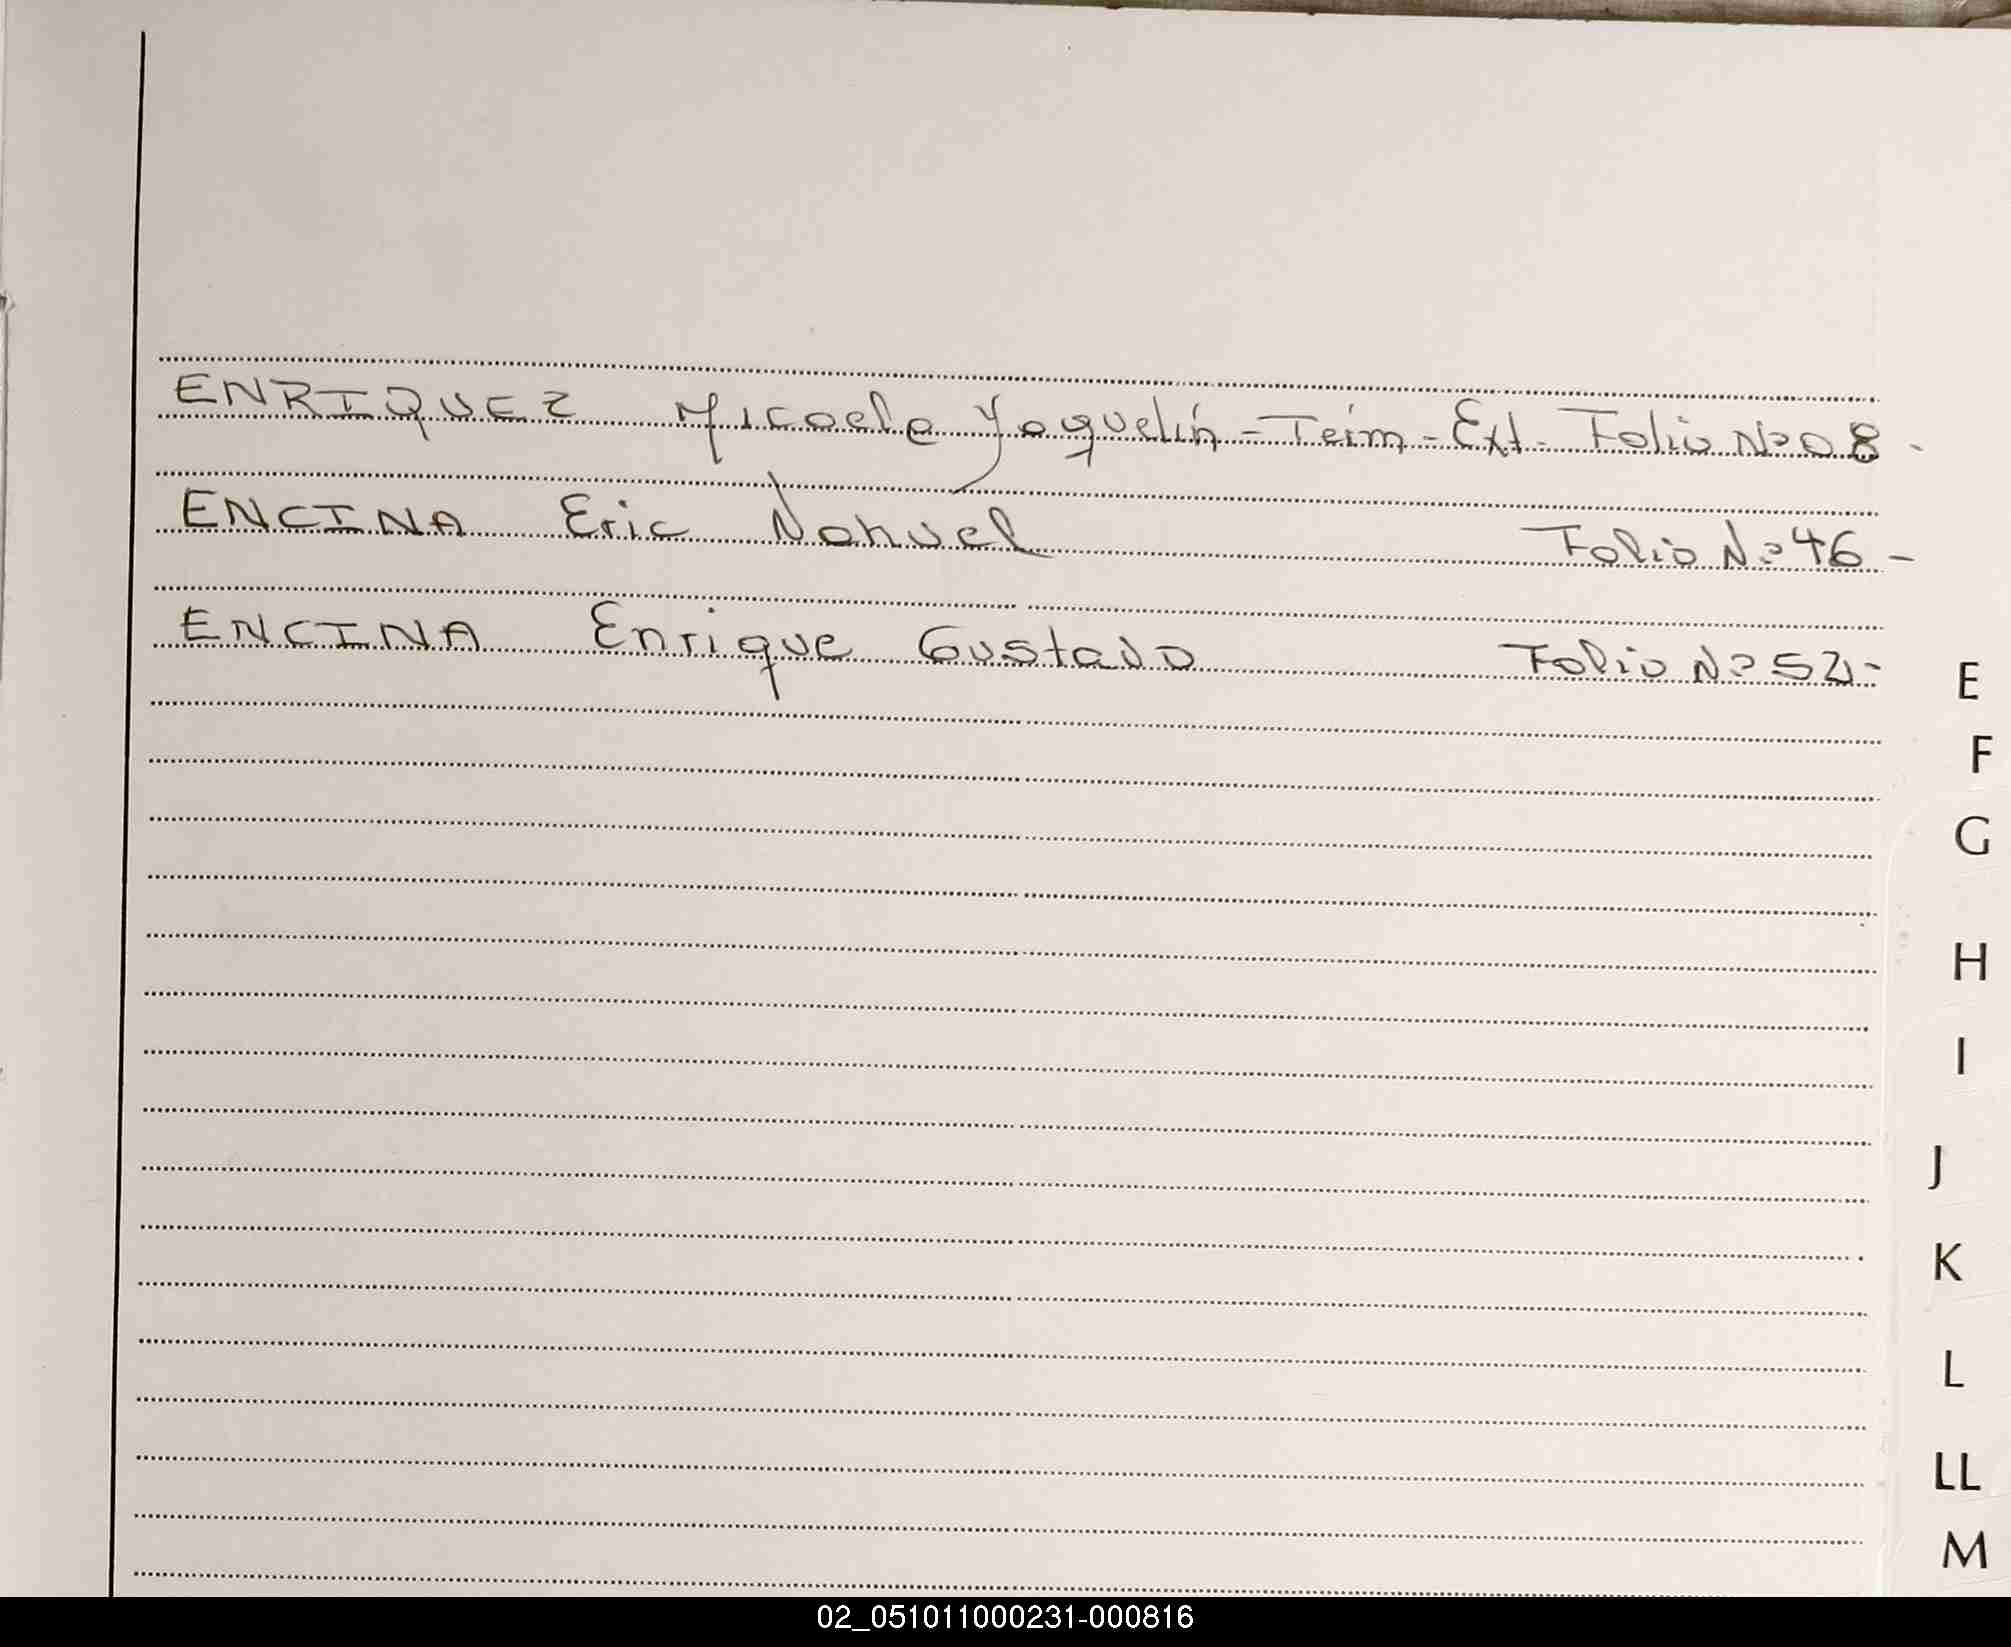 ENRIQUEZ Micaela Yaquelín - Teim - Ext. Folio Nº 08 -
ENCINA Eric Nahuel Folio Nº 46 -
ENCINA Enrique Gustavo Folio Nº 52 -
E
F
G
H
I
J
K
L
LL
M
02_051011000231-000816